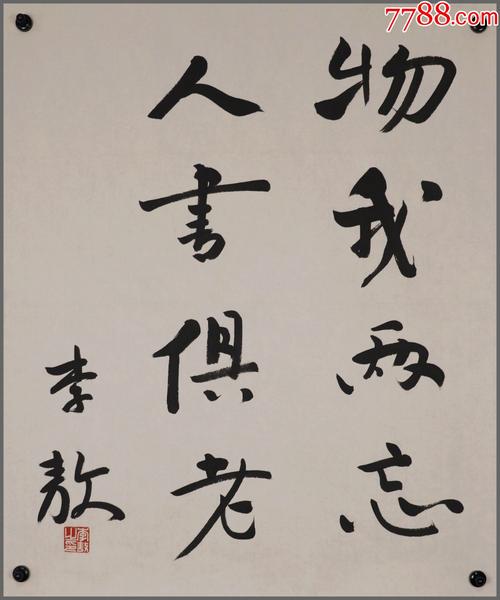 7788.com
物我兩忘
人書俱老
李敖